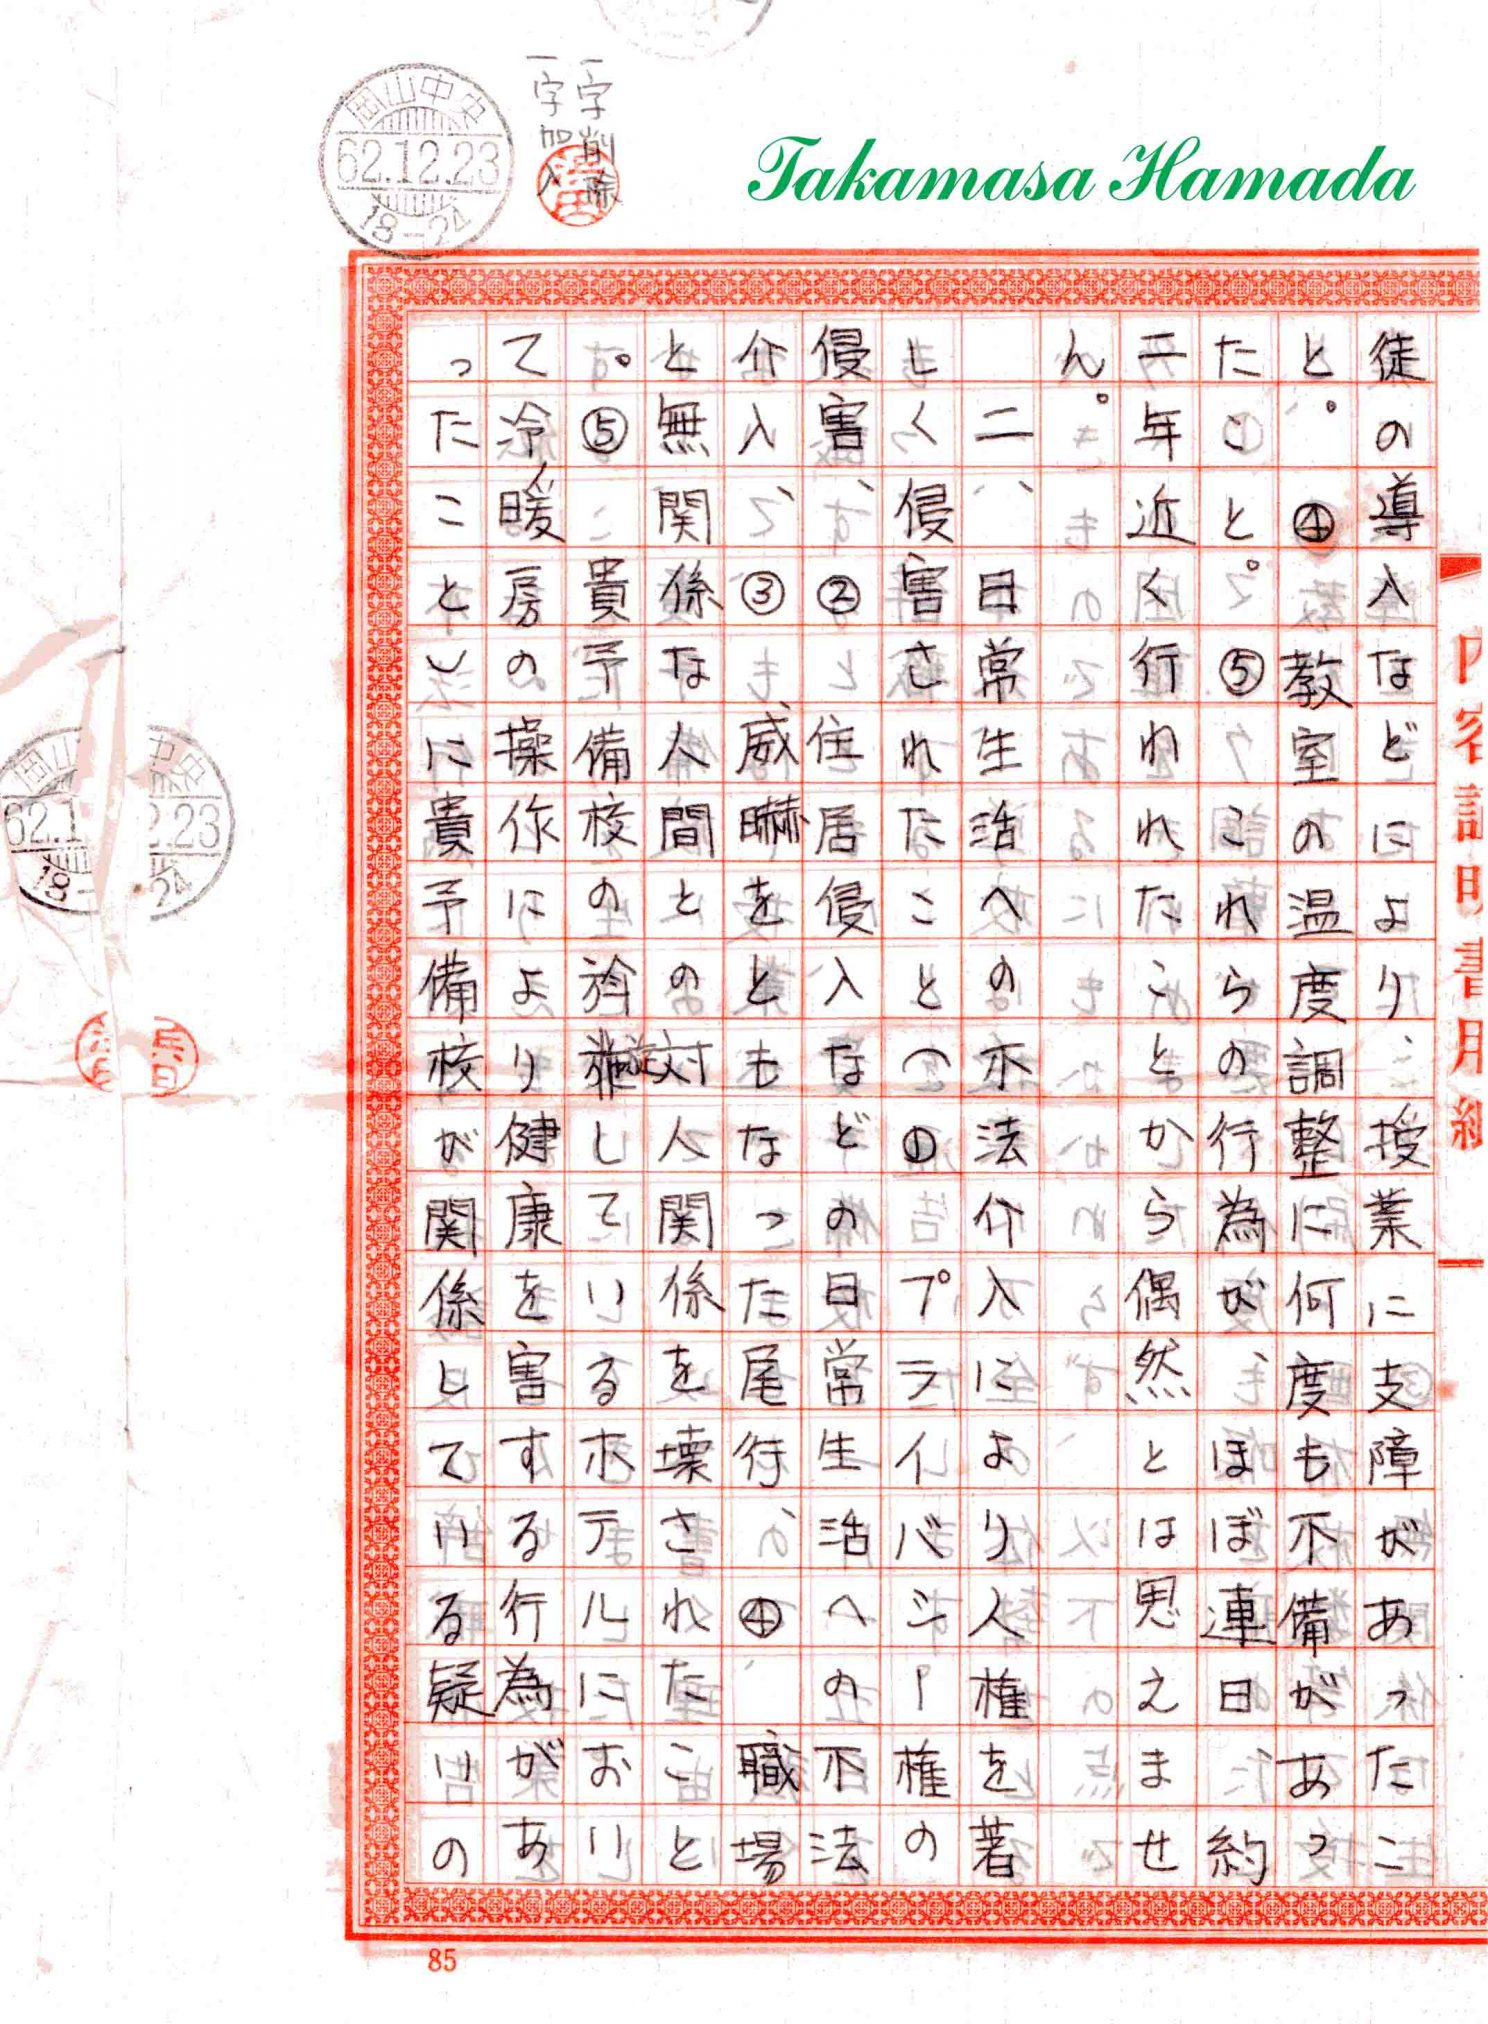 岡山中央
62.12.23
18-24
一字削除
一字加入
Takamasa Hamada
内容証明書用紙
徒の導入などにより、授業に支障があったこ
と。④教室の温度調整に何度も不備があっ
たこと。⑤これらの行為が、ほぼ連日、約
一年近く行われたことから偶然とは思えませ
ん。
二、日常生活への不法介入により人権を著
しく侵害されたこと(①プライバシー権の
侵害、②住居侵入など日常生活への不法
介入、③威嚇をともなった尾行、④職場
と無関係な人間との対人関係を壊されたこと
。⑤貴予備校の斡旋しているホテルにおい
て冷暖房の操作により健康を害する行為があ
ったこと)に貴予備校が関係している疑いの
岡山中央
62.12.23
18-24
85